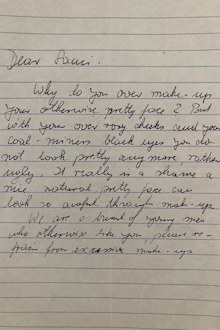 Dear Sauci.
Why to you over make-up
your otherwise pretty face? But
with your over rosy cheeks and your
coal-miners black eyes you do
not look pretty any more rather
ugly. It really is a shame a
nice natural pretty face can
look so awful through make-up.
We are a bunch of young men
who otherwise like you, please re-
frain from excessive make-up